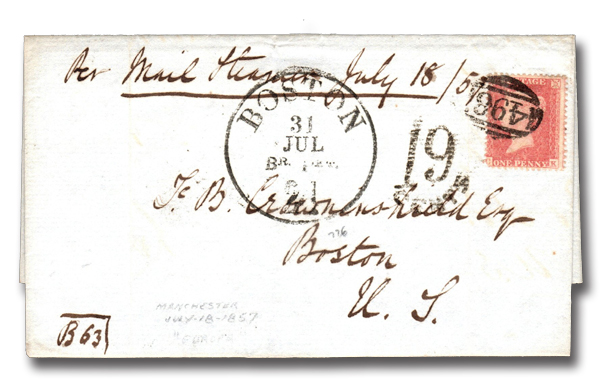 Per Mail Steamer July 18/57
BOSTON
31
JUL
Br. Pkt.
19
496
POSTAGE
ONE PENNY
F. B. Crowninshield Esq
Boston
U. S.
B 63
MANCHESTER
JULY-18-1857
"EUROPA